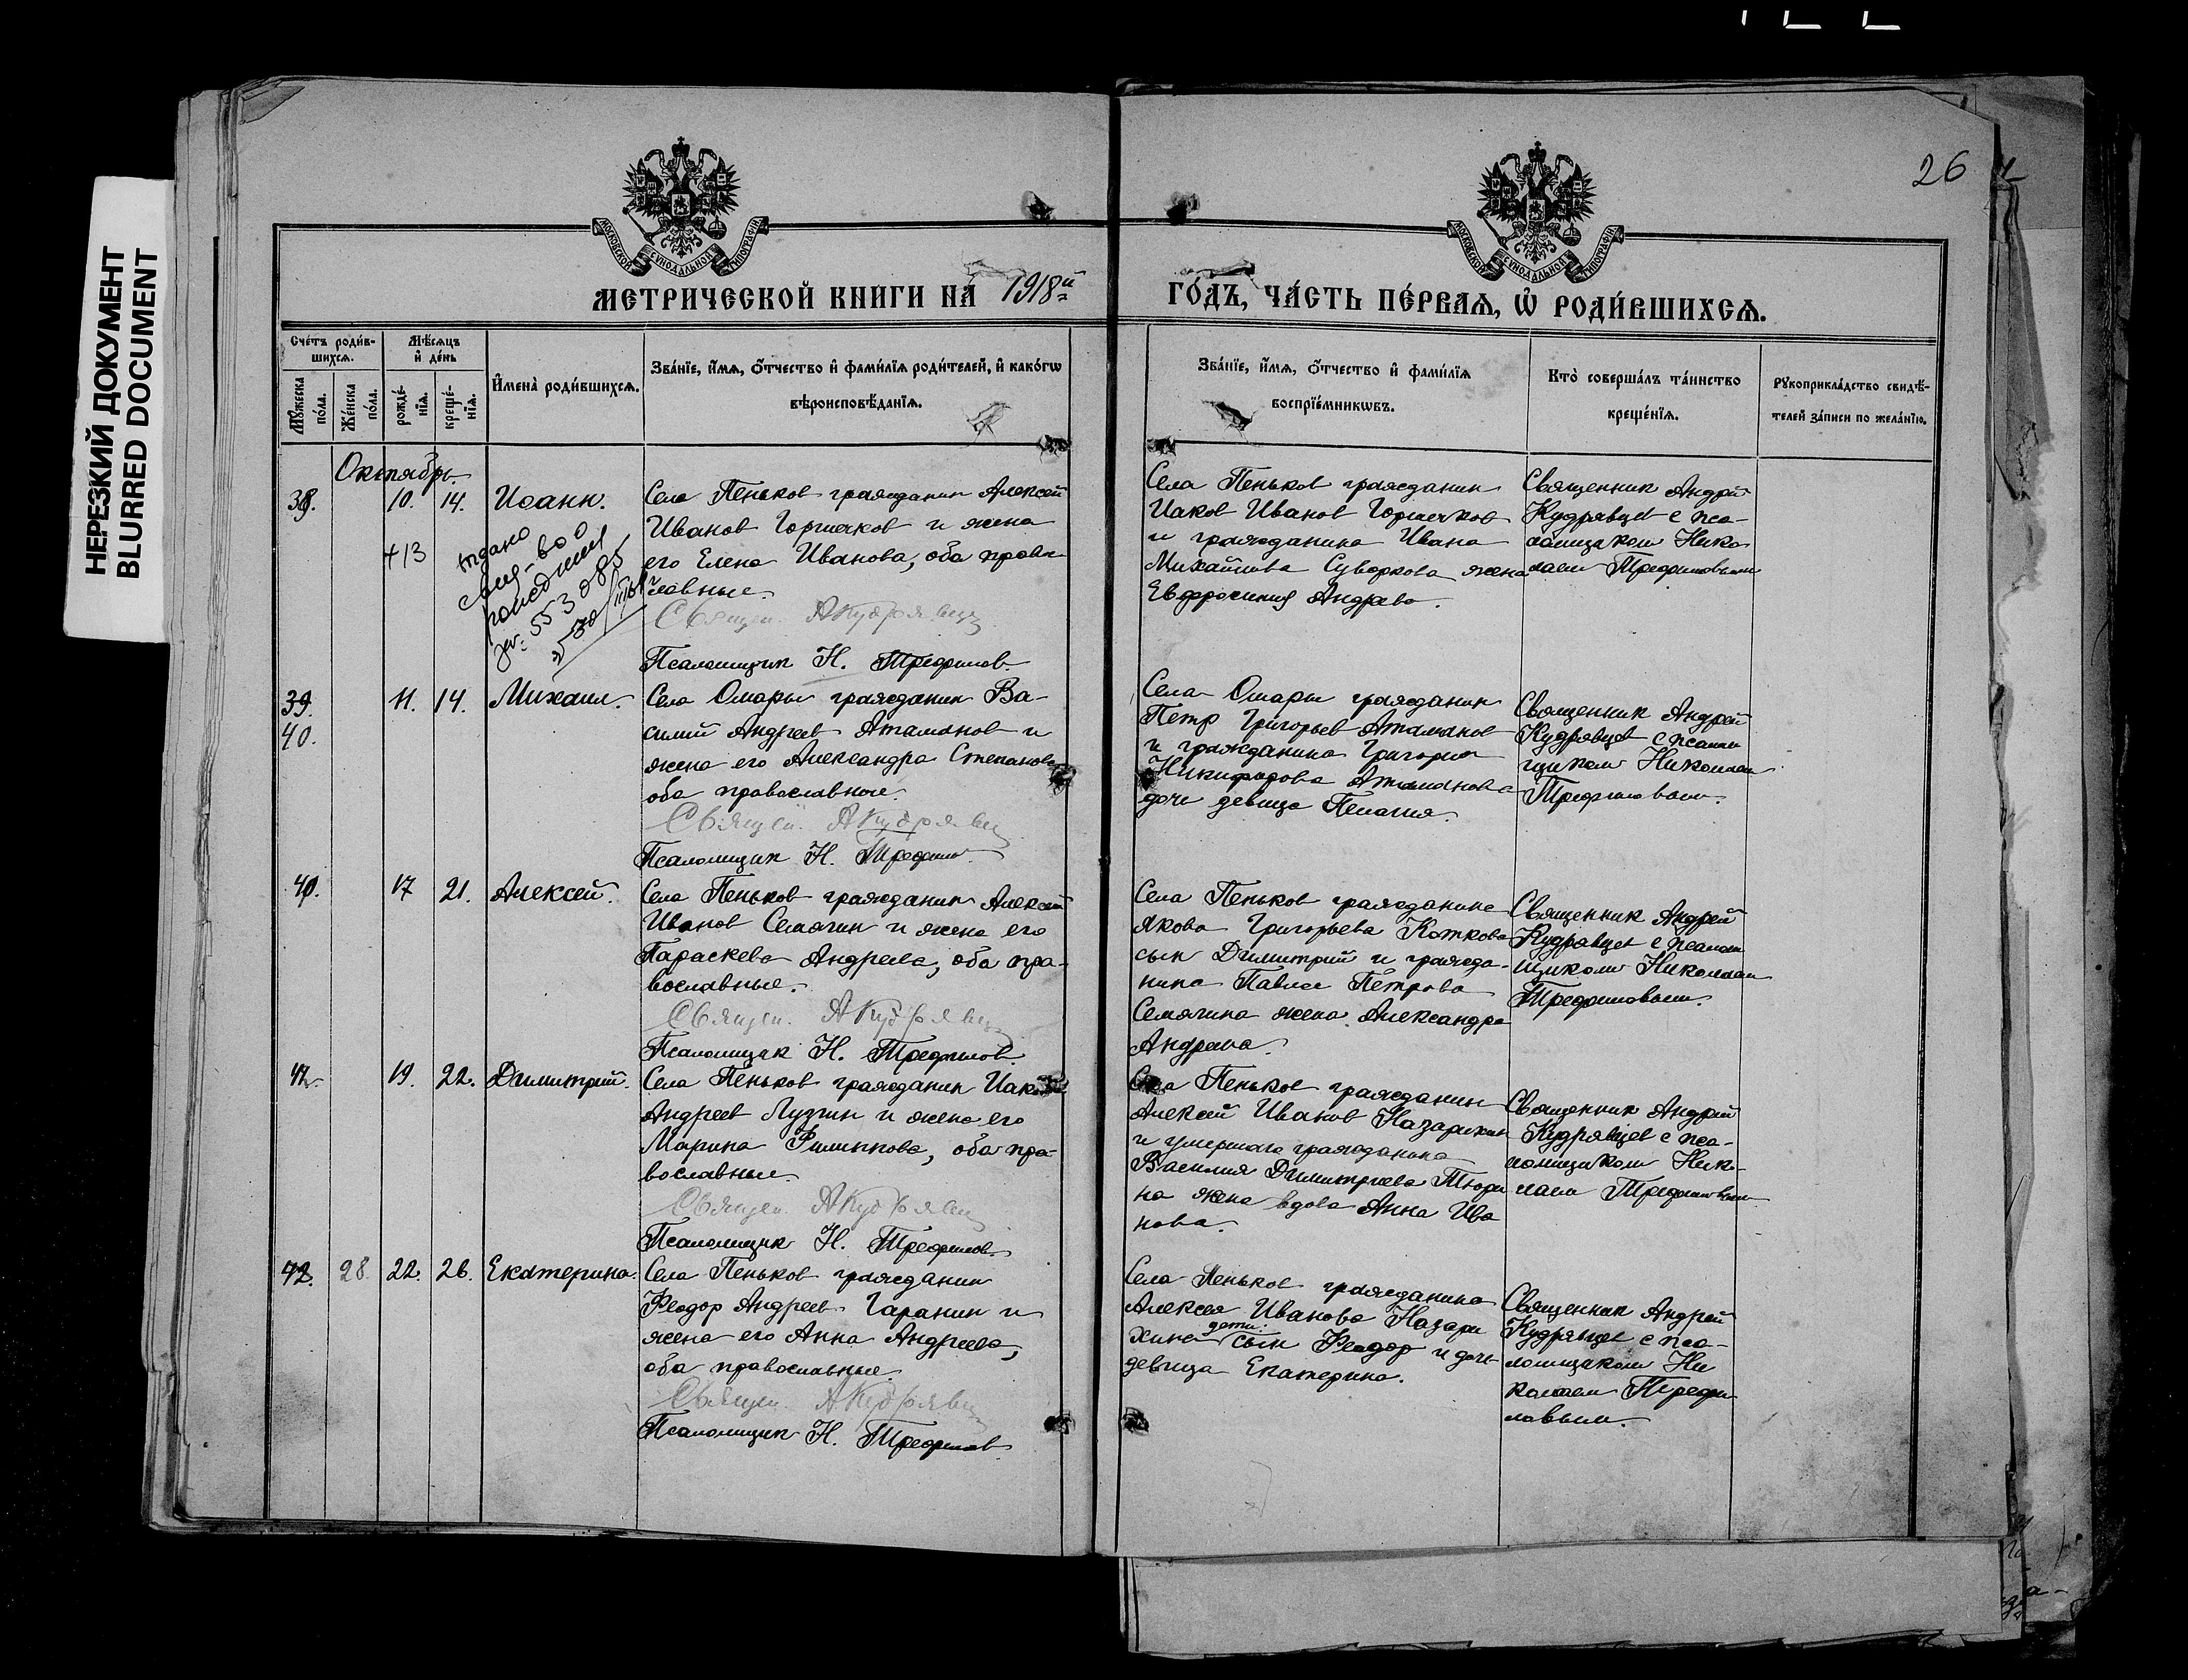 НЕРЕЗКИЙ ДОКУМЕНТ
BLURRED DOCUMENT
26
МОСКОВСКОЙ СѴНОДАЛЬНОЙ ТИПОГРАФІИ
МОСКОВСКОЙ СѴНОДАЛЬНОЙ ТИПОГРАФІИ
МЕТРИЧЕСКОЙ КНИГИ НА 1918й
ГО́ДЪ, ЧА́СТЬ ПЕ́РВАЯ, Ѡ҆ РОДИ́ВШИХСЯ.
Сче́тъ роди́в-
шихся.
Мѣ́сяцъ
и҆ де́нь
И҆мена̀ роди́вшихся.
Зва́нїе, и҆́мя, ѻ҆́тчество и҆ фами́лїя роди́телей, и҆ како́гѡ
вѣроисповѣ́данїя.
Мꙋ́жеска
по́ла.
Же́нска
по́ла.
рожде́-
нїя.
креще́-
нїя.
Зва́нїе, и҆́мя, ѻ҆́тчество и҆ фами́лїя
воспрїе́мникѡвъ.
Кто̀ соверша́лъ та́инство
креще́нїя.
Рꙋкоприкла́дство свидѣ́-
телей за́писи по жела́нїю.
Октябрь.
38. 10. 14. Иоанн.
+13
Села Пеньков гражданин Алексей
Иванов Горшечков и жена
его Елена Иванова, оба право
славные.
Священ. А Кудрявцев
Псаломщик Н. Трефилов.
Села Пеньков гражданин
Иаков Иванов Горшечков
и гражданина Ивана
Михайлова Суворкова жена
Евфросиния Андреева.
Священник Андрей
Кудрявцев с пса-
ломщиком Нико
лаем Трефиловым
39. 11. 14. Михаил.
40.
Села Омары гражданин Ва-
силий Андреев Атаманов и
жена его Александра Степанова
оба православные.
Священ. А Кудрявцев
Псаломщик Н. Трефилов.
Села Омары гражданин
Петр Григорьев Атаманов
и гражданина Григория
Никифорова Атаманова
дочь девица Пелагия.
Священник Андрей
Кудрявцев с псалом
щиком Николаем
Трефиловым.
40. 17 21. Алексей.
Села Пеньков гражданин Алексей
Иванов Семягин и жена его
Параскева Андреева, оба пра-
вославные.
Священ. А Кудрявцев
Псаломщик Н. Трефилов.
Села Пеньков гражданина
Якова Григорьева Коткова
сын Димитрий и гражда-
нина Павла Петрова
Семягина жена Александра
Андреева.
Священник Андрей
Кудрявцев с псалом
щиком Николаем
Трефиловым.
19. 22. Димитрий.
Села Пеньков гражданин Иаков
Андреев Лузгин и жена его
Марина Филиппова, оба пра-
вославные.
Священ. А Кудрявцев
Псаломщик Н. Трефилов.
Села Пеньков гражданин
Алексей Иванов Назарихин
и умершаго гражданина
Василия Димитриева Тюри
на жена вдова Анна Ива
нова.
Священник Андрей
Кудрявцев с пса-
ломщиком Нико-
лаем Трефиловым
42. 28. 22. 26. Екатерина.
Села Пеньков гражданин
Феодор Андреев Гаранин и
жена его Анна Андреева,
оба православные.
Священ. А Кудрявцев
Псаломщик Н. Трефилов
Села Пеньков гражданина
Алексея Иванова Назари
хина дети: сын Феодор и дочь
девица Екатерина.
Священник Андрей
Кудрявцев с пса-
ломщиком Ни
колаем Трефи
ловым.